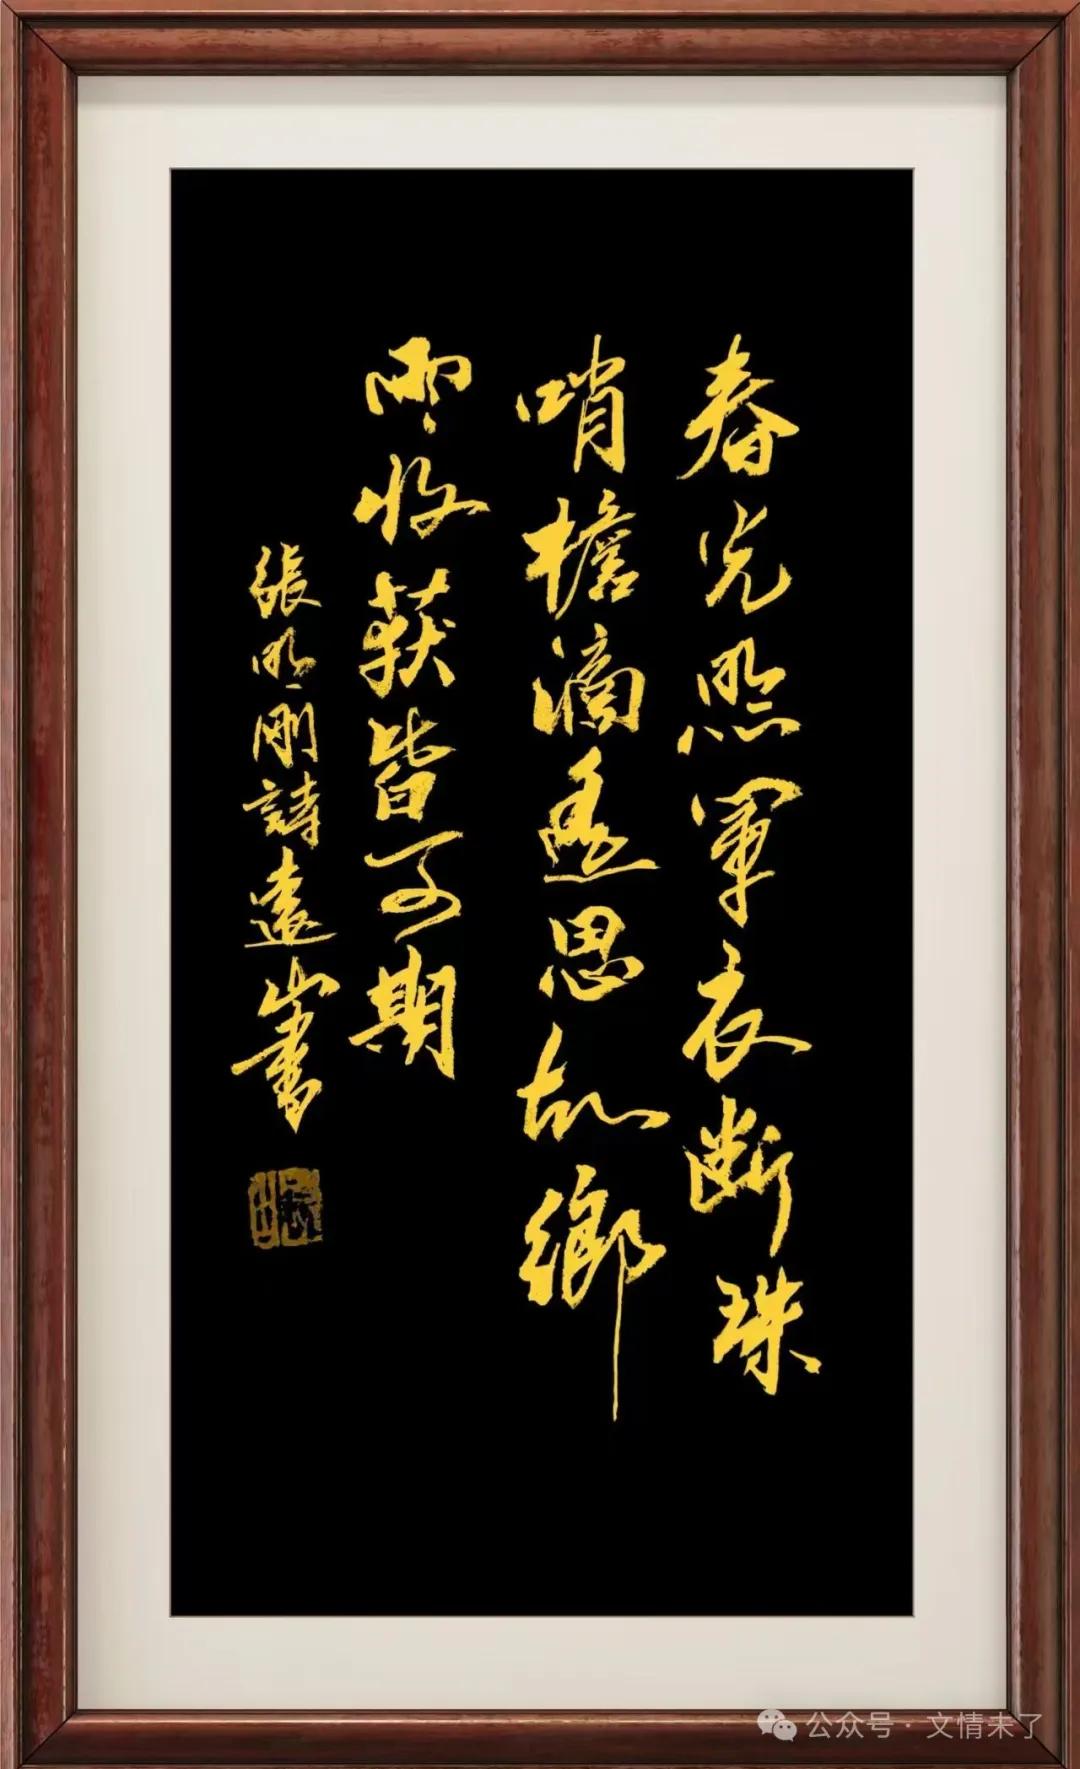 春光照軍衣断珠
哨檐滴遥思故鄉
雨收获皆可期
張明剛詩遠山書
公众号·文情未了